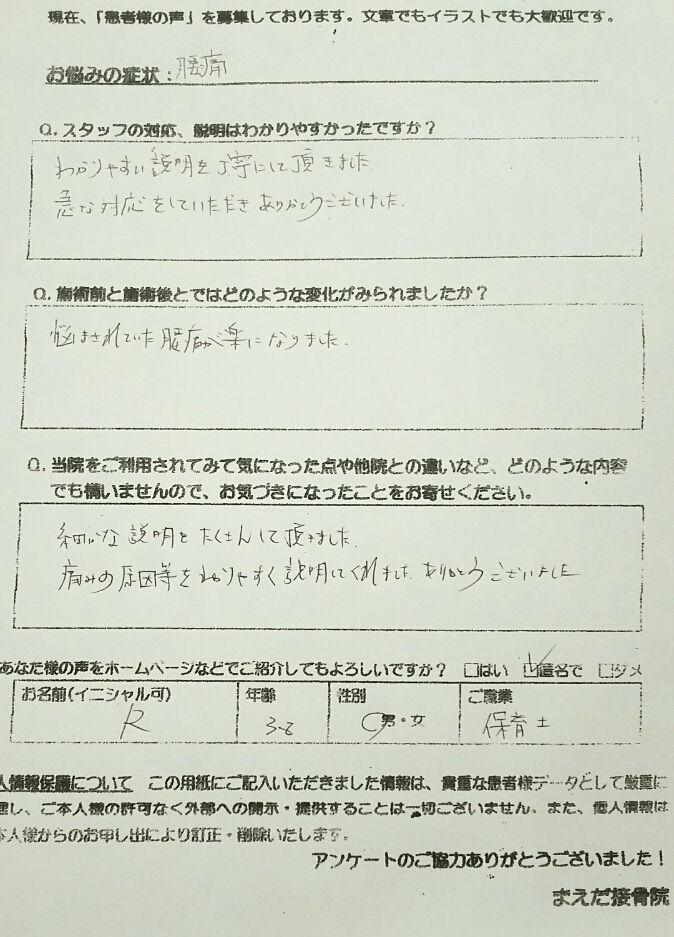 現在、「患者様の声」を募集しております。文章でもイラストでも大歓迎です。
お悩みの症状：腰痛
Q. スタッフの対応、説明はわかりやすかったですか？
わかりやすい説明を丁寧にして頂きました.
急な対応をしていただきありがとうございました.
Q. 施術前と施術後とではどのような変化がみられましたか？
悩まされていた腰痛が楽になりました.
Q. 当院をご利用されてみて気になった点や他院との違いなど、どのような内容
でも構いませんので、お気づきになったことをお寄せください。
細かな説明をたくさんして頂きました.
痛みの原因等をわかりやすく説明してくれました ありがとうございました
あなた様の声をホームページなどでご紹介してもよろしいですか？ □はい ☑匿名で □ダメ
お名前(イニシャル可) 年齢 性別 ご職業
R 38 男・女 保育士
人情報保護について この用紙にご記入いただきました情報は、貴重な患者様データとして厳重に
理し、ご本人様の許可なく外部への開示・提供することは一切ございません。また、個人情報は
本人様からのお申し出により訂正・削除いたします。
アンケートのご協力ありがとうございました！
まえだ接骨院